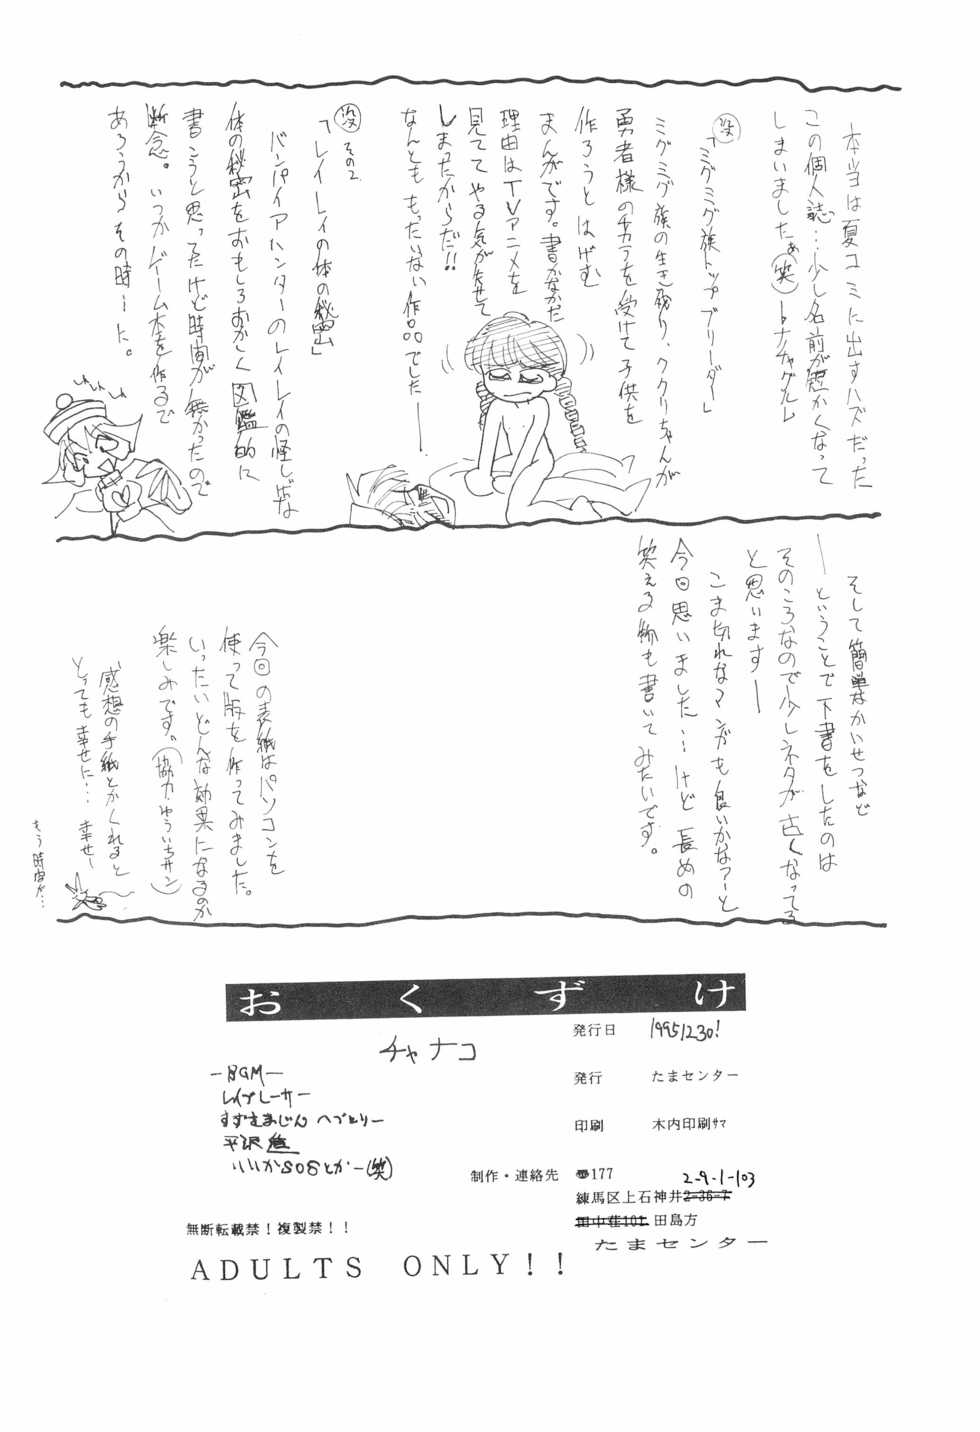 本当は夏コミに出すハズだった
この個人誌…少し名前が悪かくなって
しまいましたぁ(笑)
没
「ミグミグ族トップブリーダー」
ミグミグ族の生き残り、ククリちゃんが
勇者様のチカラを受けて子供を
作ろうとはげむ
まんがです。書かなかった
理由はTVアニメを
見ててやる気がうせて
しまったからだ!!
なんとももったいない作品でした——
没 その2
「レイレイの体の秘密」
バンパイアハンターのレイレイの怪しげな
体の秘密をおもしろおかしく図鑑的に
書こうと思ってたけど時間が無かったので
断念。いつかゲーム本を作るで
あろうからその時に。
そして簡単なかいせつなど
——ということで下書をしたのは
そのころなので少しネタが古くなってる
と思います——
こま切れなマンガも良いかなァーと
今回思いました…けど長めの
笑える物も書いてみたいです。
今回の表紙はパソコンを
使って版を作ってみました。
いったいどんな効果になるのか
楽しみです。(協力・ゆういちサン)
感想の手紙とかくれると
とっても幸せに…幸せー
もう時間が…
おくずけ
チャナコ
—BGM—
レイブレーサー
平沢進
いいかSOSとかー(笑)
発行日 19951230!
発行 たまセンター
印刷 木内印刷サマ
制作・連絡先 177
2-9-1-103
練馬区上石神井2-36-7
田中荘101 田島方
たまセンター
無断転載禁!複製禁!!
ADULTS ONLY!!